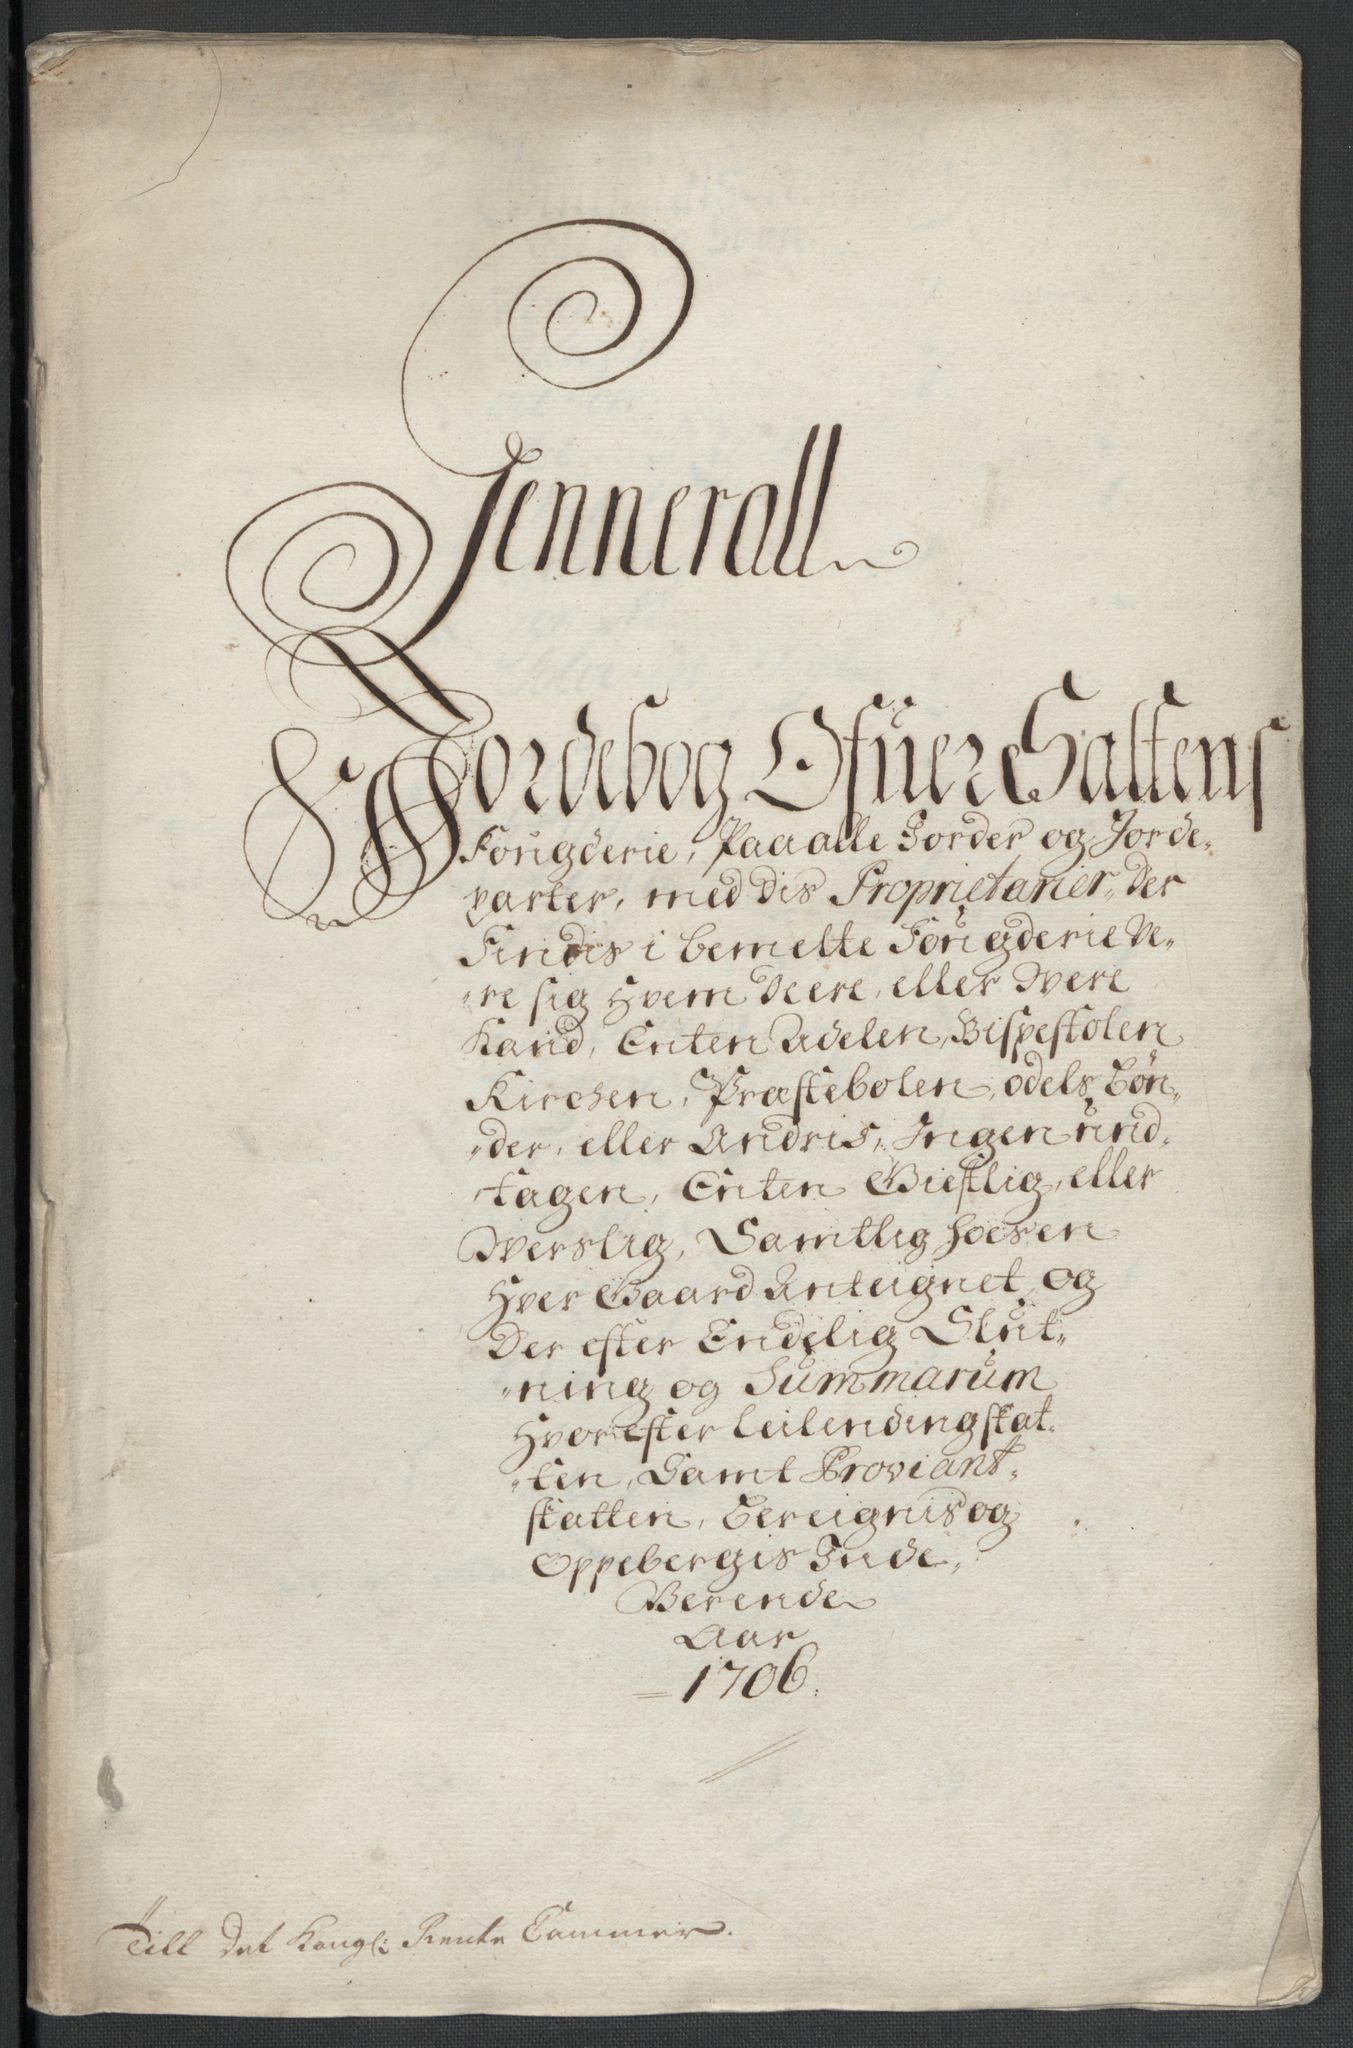 Jennerall
Jordebog Ofuer Saltens
Fougderie, Paa alle Jorder og Jorde-
parter, med dis Proprietarier, Der
Findis i bemelte Fougderie Ve-
re sig Hvem Veere, eller Vere
Kand, Enten Adelen, Bispestolen
Kirchen, Præstebolen, odels Bøn-
der, eller Andris, Ingen und-
tagen, Enten Gieistlig, eller
Verslig, Samtlig hoesen
Hver Gaard Anteignet, og
Der efter Endelig Slut-
ning og Summarum
Hvorefter Leilendingskat-
ten, Samt Proviant-
skatten, Bereignis og
Oppebergis Inde-
Berende
Aar
1706.
Till Det Kongl: Rente Cammer.